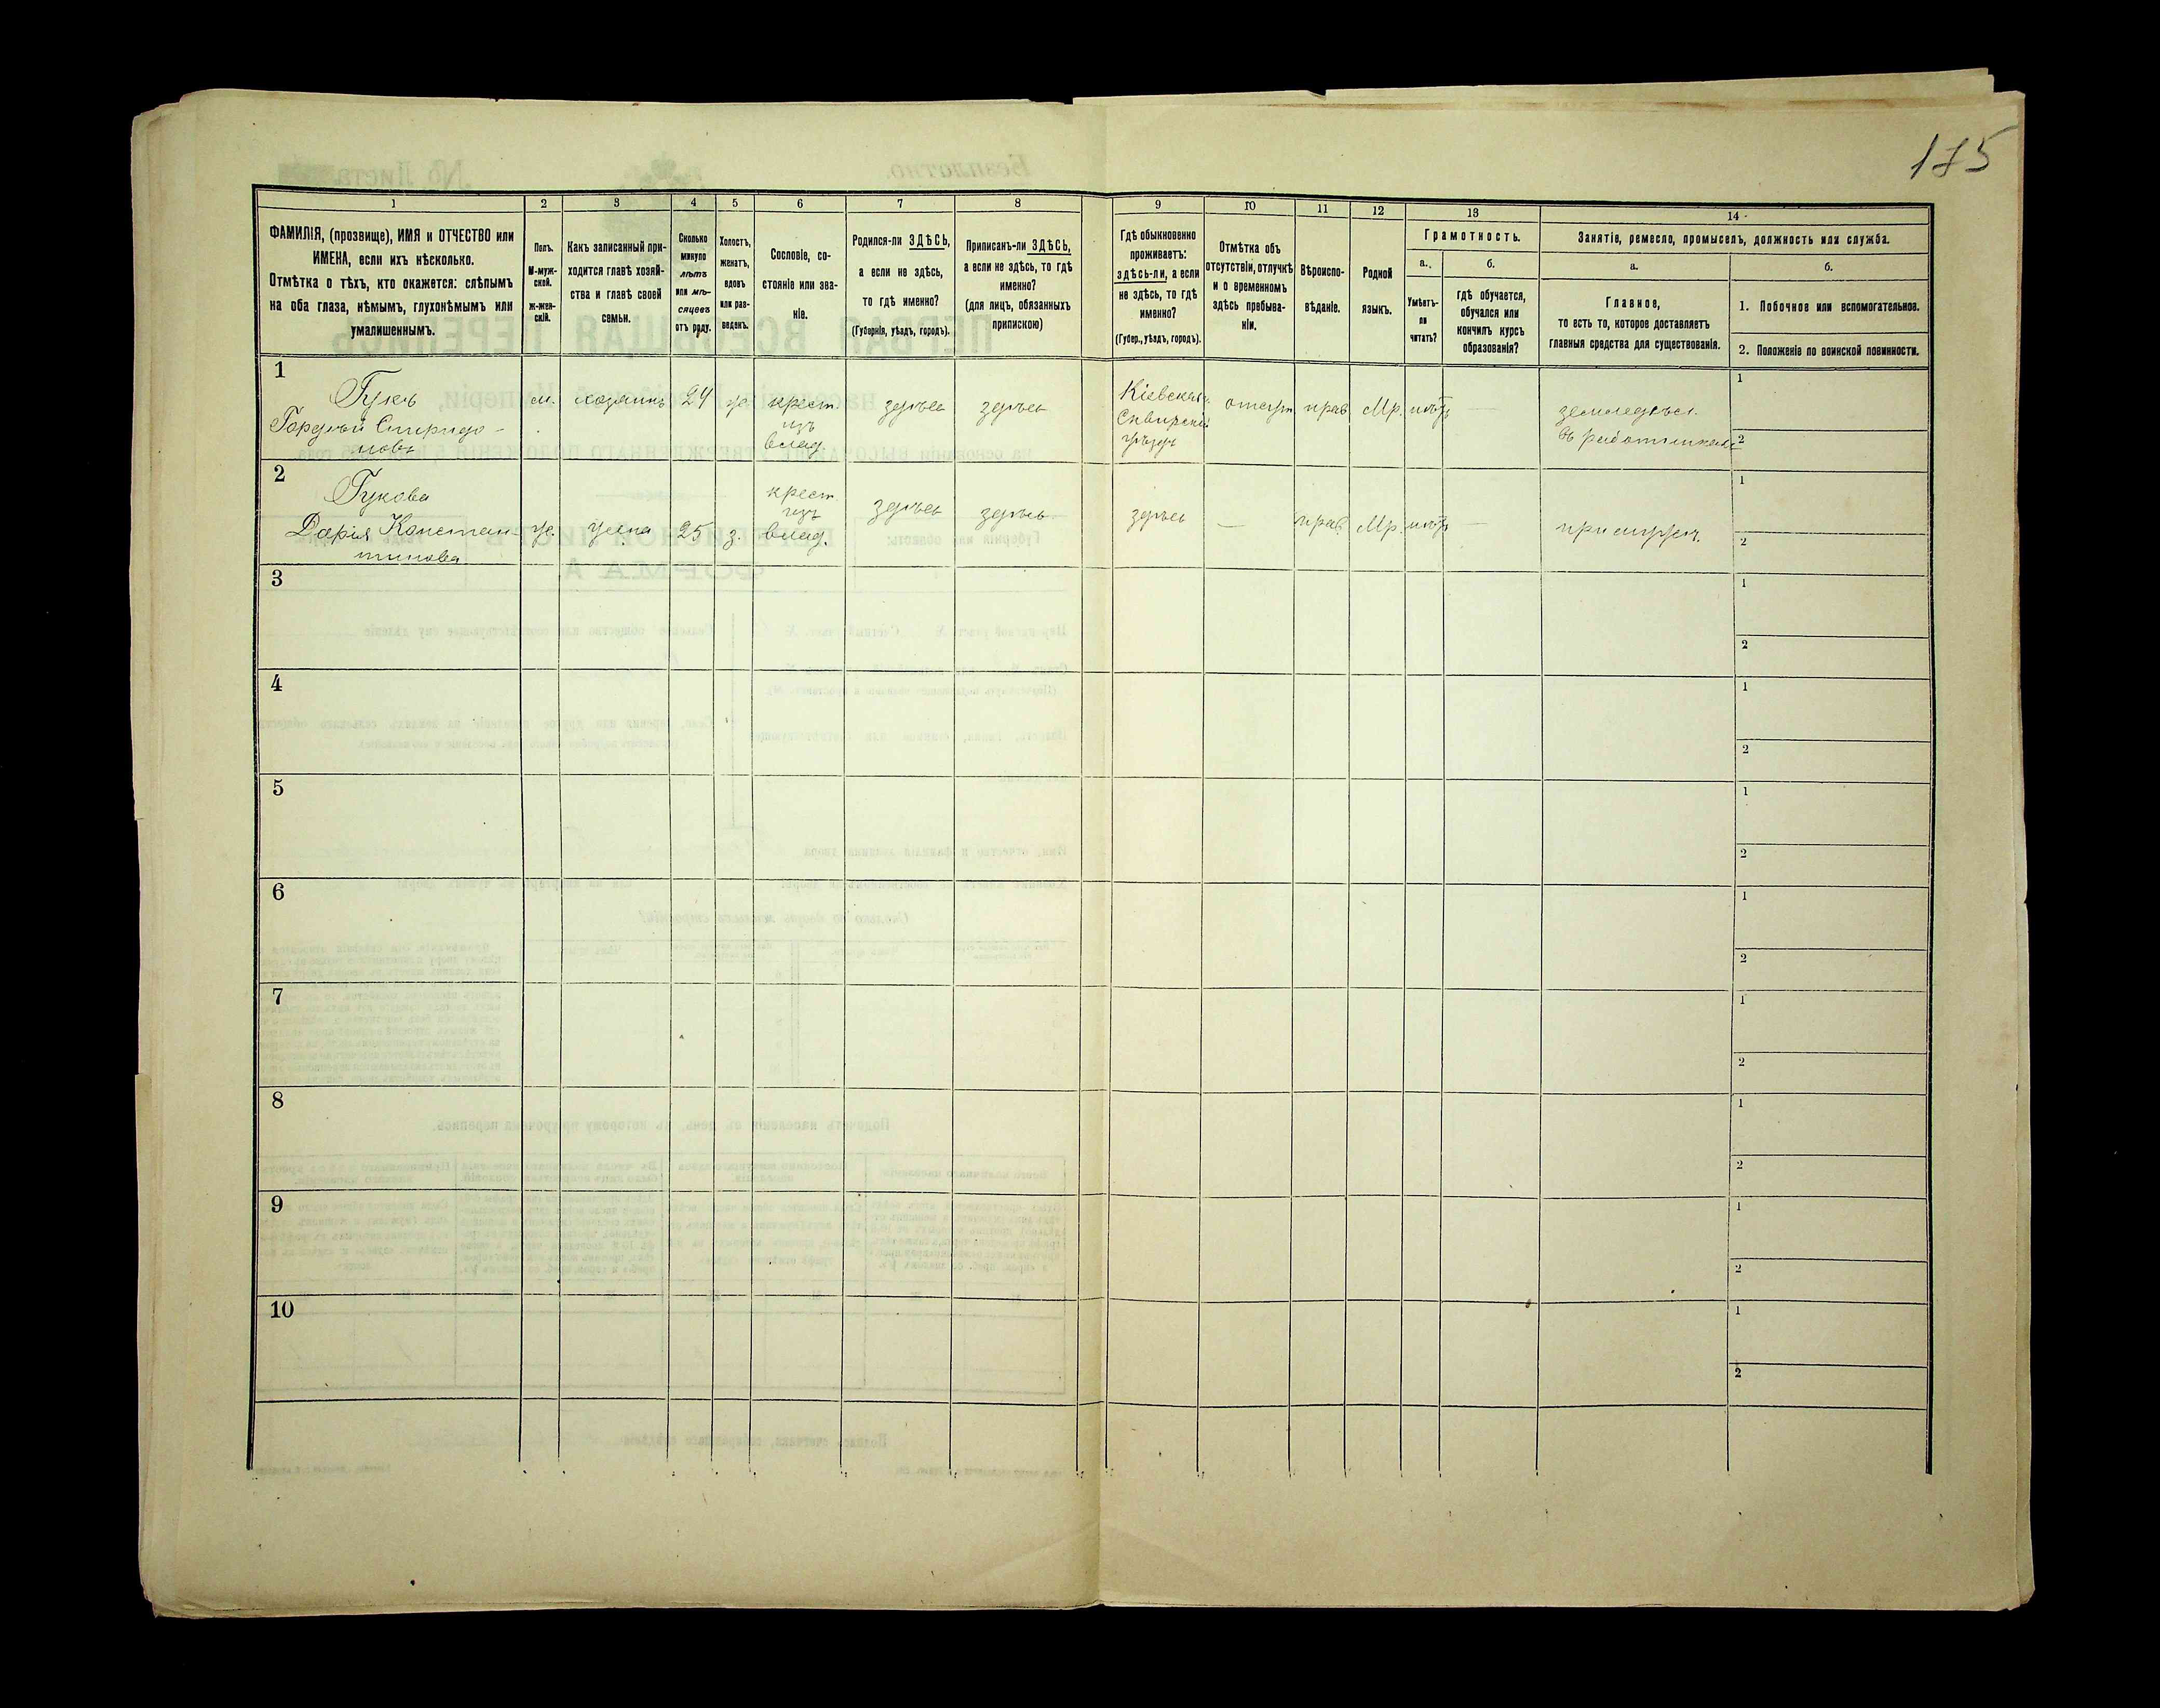 175
1
2
3
4
5
6
7
8
9
10
11
12
13
14
ФАМИЛІЯ, (прозвище), ИМЯ и ОТЧЕСТВО или
ИМЕНА, если ихъ нѣсколько.
Отмѣтка о тѣхъ, кто окажется: слѣпымъ
на оба глаза, нѣмымъ, глухонѣмымъ или
умалишеннымъ.
Полъ.
М-муж-
ской.
ж-жен-
скій.
Какъ записанный при-
ходится главѣ хозяй-
ства и главѣ своей
семьи.
Сколько
минуло
лѣтъ
или мѣ-
сяцевъ
отъ роду.
Холостъ,
женатъ,
вдовъ
или раз-
веденъ.
Сословіе, со-
стояніе или зва-
ніе.
Родился-ли ЗДѢСЬ,
а если не здѣсь,
то гдѣ именно?
(Губернія, уѣздъ, городъ).
Приписанъ-ли ЗДѢСЬ,
а если не здѣсь, то гдѣ
именно?
(для лицъ, обязанныхъ
припискою)
Гдѣ обыкновенно
проживаетъ:
здѣсь-ли, а если
не здѣсь, то гдѣ
именно?
(Губер., уѣздъ, городъ).
Отмѣтка объ
отсутствіи, отлучкѣ
и о временномъ
здѣсь пребыва-
ніи.
Вѣроиспо-
вѣданіе.
Родной
языкъ.
Грамотность.
а.
Умѣетъ-
ли
читать?
б.
гдѣ обучается,
обучался или
кончилъ курсъ
образованія?
Занятіе, ремесло, промыселъ, должность или служба.
а.
Главное,
то есть то, которое доставляетъ
главныя средства для существованія.
б.
1. Побочное или вспомогательное.
2. Положеніе по воинской повинности.
1
Гукъ
Гордѣй Спиридо-
новъ
м.
хозяинъ
24
ж.
крест.
изъ
влад.
здѣсь
здѣсь
Кіевская
Сквирскій
уѣздъ
отсут
прав.
Мр.
нѣтъ
—
земледѣл.
въ работникахъ
1
2
2
Гукова
Дарія Констан-
тинова
ж.
жена
25
з.
крест
изъ
влад.
здѣсь
здѣсь
здѣсь
—
прав.
Мр.
нѣтъ
—
при мужѣ.
1
2
3
1
2
4
1
2
5
1
2
6
1
2
7
1
2
8
1
2
9
1
2
10
1
2